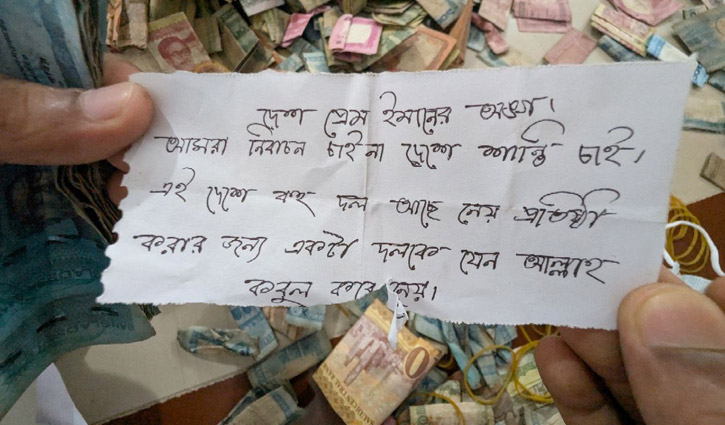 দেশ প্রেম ইমানের অঙ্গ।
আমরা নির্বাচন চাই না দেশে শান্তি চাই।
এই দেশে বহু দল আছে নেয় প্রতিষ্ঠা
করার জন্য একটা দলকে যেন আল্লাহ
কবুল করে নেয়।